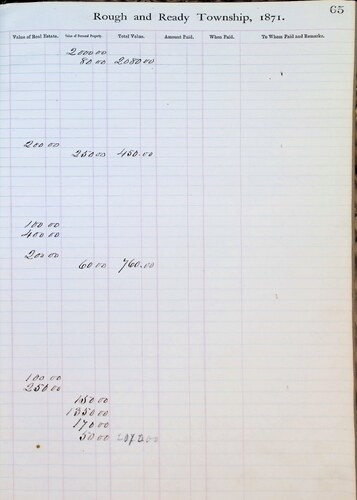 65
Rough and Ready Township, 1871.
Value of Real Estate. Value of Personal Property. Total Value. Amount Paid. When Paid. To Whom Paid and Remarks.
2000 00
80 00 2080 00
200 00
250 00 450 00
100 00
400 00
200 00
60 00 760 00
100 00
250 00
150 00
1350 00
170 00
50 00